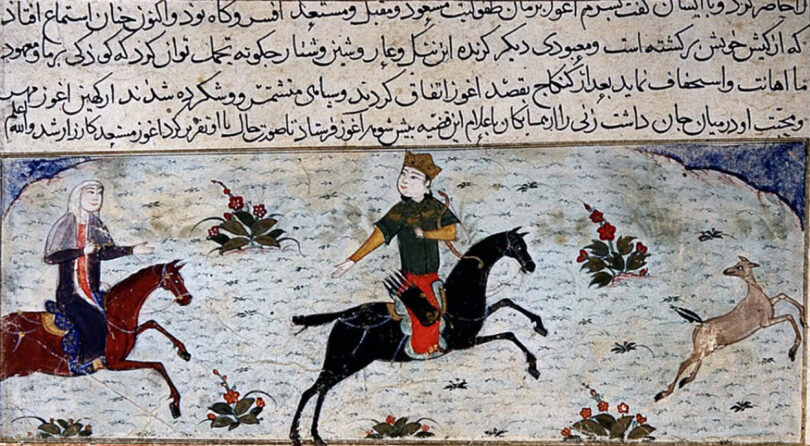 را حاضر کرد و با ایشان گفت پسرم اغوز بزمان طفولیت مسعود و مقبل و مستعد افسر و کاه بود و اکنون چنان استماع افتاد
که از کیش خویش برکشته است و معبودی دیکر کزیده این ننک و عار و شین و شنار چکونه تحمل توان کرد که کوذکی بر ما و معبود
ما اهانت و استخفاف نماید بعد از کنکاج بقصد اغوز اتفاق کردند و متشمر و وشکرده شدند کهین اغوز مهر
و محبت او در میان جان داشت زنی را از همسایکان باعلام این قضیه پیش شوهر اغوز فرستاد تا صورت حال با او تقریر کرد اغوز مستعد کارزار شد والله اعلم